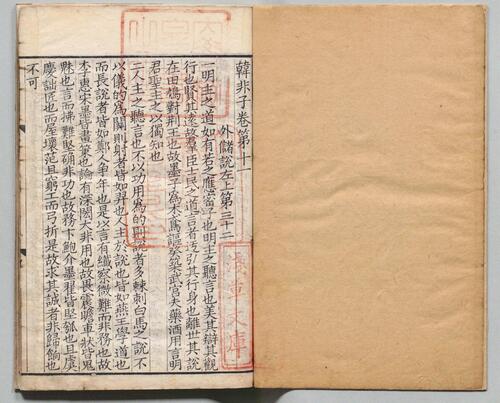 韓非子卷第十一
外儲說左上第三十二
一明主之道如有若之應密子也明主之聽言也美其辯其觀
行也賢其遠故羣臣士民之道言者迂弘其行身也離世其說
在田鳩對荆王也故墨子為木鳶謳癸築武宮夫藥酒用言明
君聖主之以獨知也
二人主之聽言也不以功用為的則說者多棘刺白馬之說不
以儀的為關則射者皆如羿也人主於說也皆如燕王學道也
而長說者皆如鄭人爭年也是以言有纖察微難而非務也故
李惠宋墨皆畫策也論有深閎大非用也故畏震瞻車狀皆鬼
魅也言而拂難堅确非功也故務卞鮑介墨翟皆堅瓠也且虞
慶詘匠也而屋壞范且窮工而弓折是故求其誠者非歸餉也
不可
淺草文庫